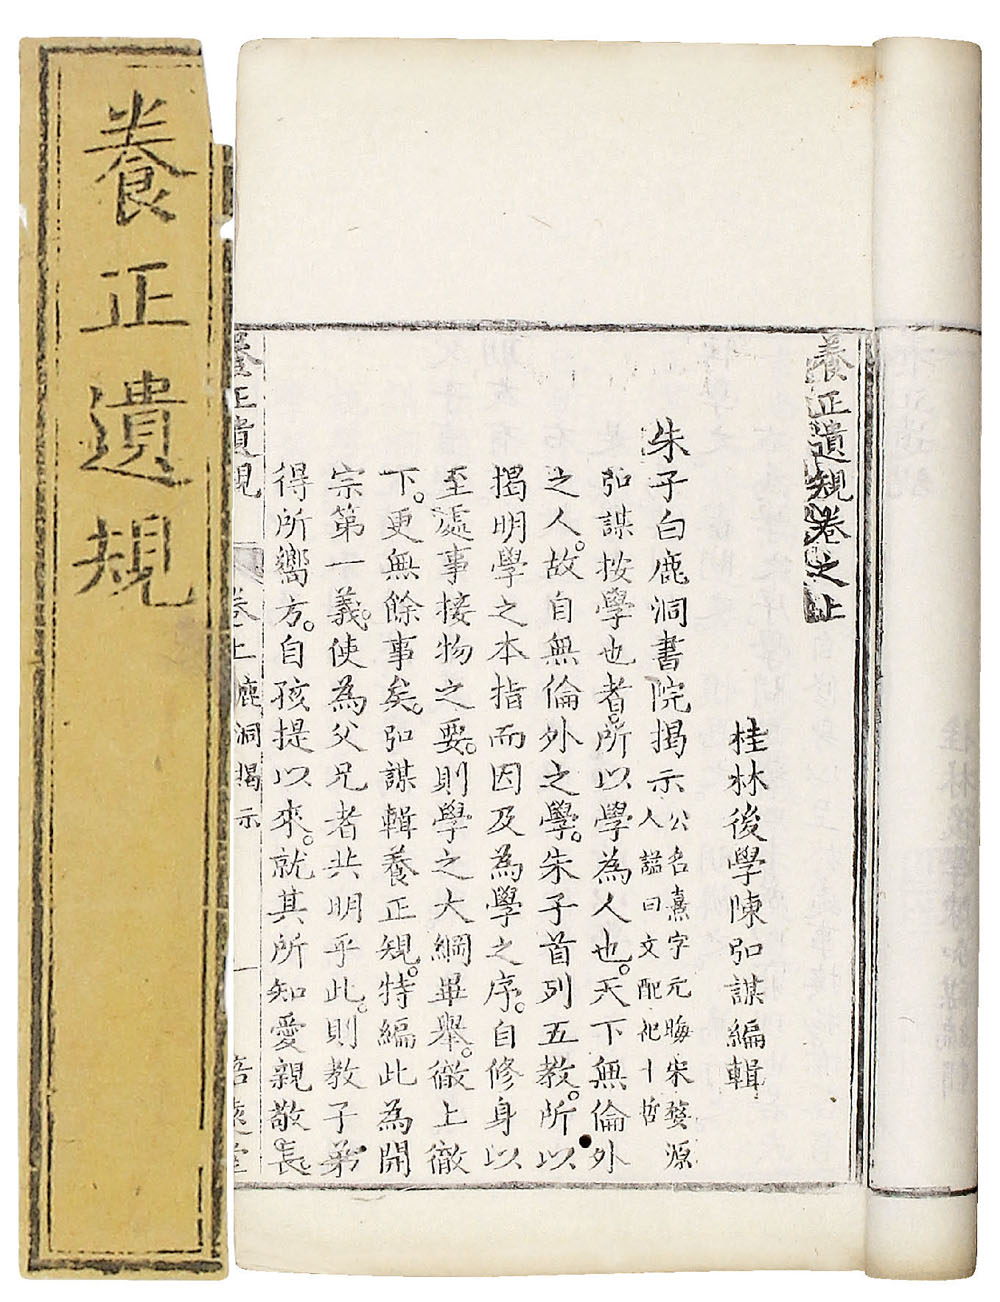 養正遺規
養正遺規卷之上
桂林後學陳弘謀編輯
朱子白鹿洞書院揭示
公名熹字元晦宋婺源
人諡曰文配祀十哲
弘謀按學也者。所以學為人也。天下無倫外
之人。故自無倫外之學。朱子首列五教。所以
揭明學之本指而因及為學之序。自修身以
至處事接物之要。則學之大綱畢舉。徹上徹
下。更無餘事矣。弘謀輯養正規。特編此為開
宗第一義。使為父兄者共明乎此。則教子弟
得所嚮方。自孩提以來。就其所知愛親敬長。
養正遺規 卷上 鹿洞揭示 一 培遠堂